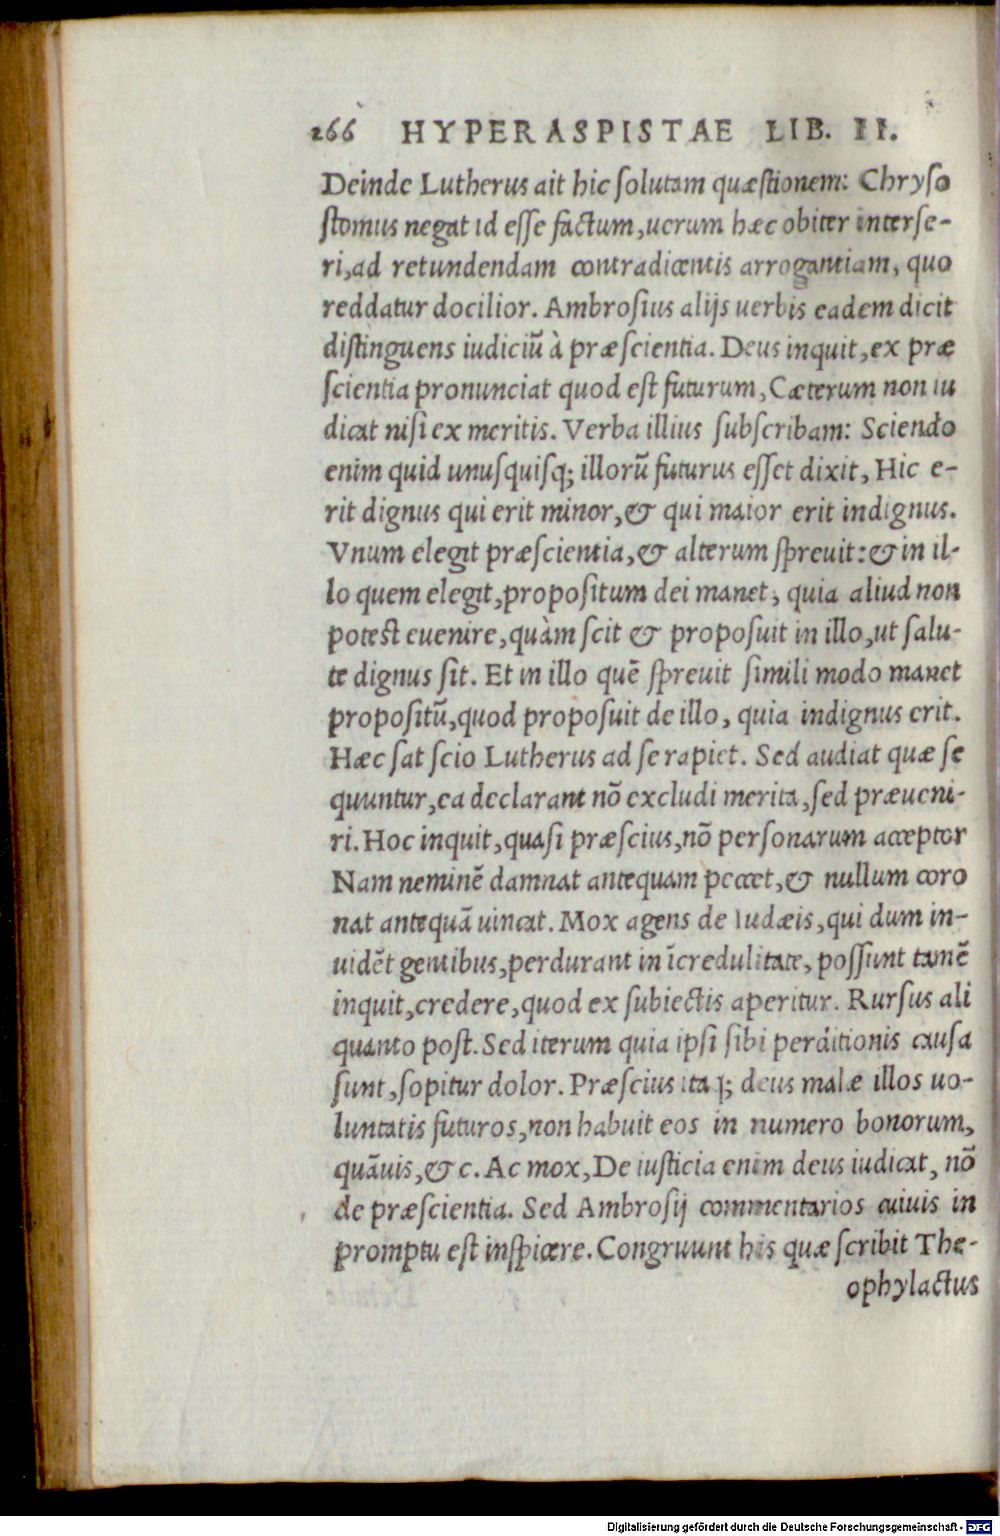 266 HYPERASPISTAE LIB. II.
Deinde Lutherus ait hic ſolutam quæſtionem: Chryſo
ſtomus negat id eſſe factum,uerum hæc obiter interſe-
ri,ad retundendam contradicentis arrogantiam, quo
reddatur docilior. Ambroſius alijs uerbis eadem dicit
diſtinguens iudiciũ à præſcientia. Deus inquit,ex præ
ſcientia pronunciat quod eſt futurum, Cæterum non iu
dicat niſi ex meritis. Verba illius ſubſcribam: Sciendo
enim quid unuſquiſq; illorũ futurus eſſet dixit, Hic e-
rit dignus qui erit minor,& qui maior erit indignus.
Vnum elegit præſcientia,& alterum ſpreuit:& in il-
lo quem elegit,propoſitum dei manet, quia aliud non
poteſt euenire,quàm ſcit & propoſuit in illo,ut ſalu-
te dignus ſit. Et in illo quẽ ſpreuit ſimili modo manet
propoſitũ,quod propoſuit de illo, quia indignus erit.
Hæc ſat ſcio Lutherus ad ſe rapiet. Sed audiat quæ ſe
quuntur,ea declarant nõ excludi merita,ſed præueni-
ri. Hoc inquit,quaſi præſcius,nõ perſonarum acceptor
Nam neminẽ damnat antequam peccet,& nullum coro
nat antequã uincat. Mox agens de Iudæis,qui dum in-
uidẽt gentibus,perdurant in ĩcredulitate, poſſunt tamẽ
inquit,credere,quod ex ſubiectis aperitur. Rurſus ali
quanto poſt. Sed iterum quia ipſi ſibi perditionis cauſa
ſunt,ſopitur dolor. Præſcius itaq; deus malæ illos uo-
luntatis futuros,non habuit eos in numero bonorum,
quãuis,& c. Ac mox,De iuſticia enim deus iudicat, nõ
de præſcientia. Sed Ambroſij commentarios cuiuis in
promptu eſt inſpicere. Congruunt his quæ ſcribit The-
ophylactus
Digitalisierung gefördert durch die Deutsche Forschungsgemeinschaft - DFG